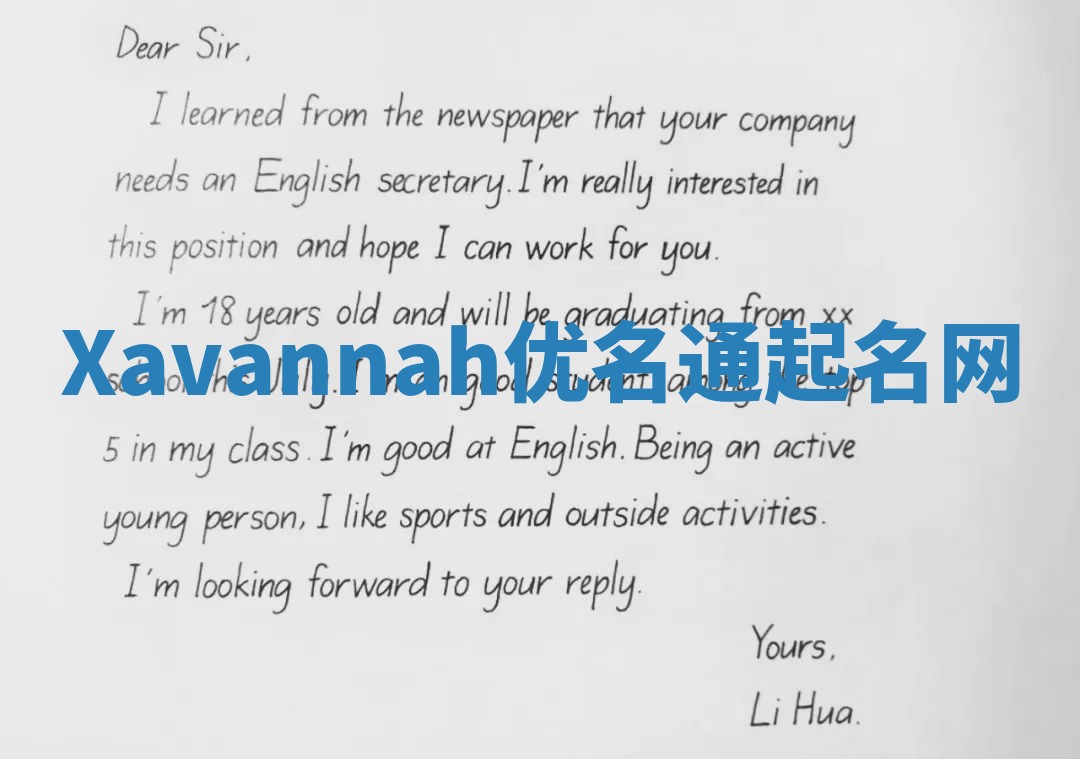 Dear Sir,
I learned from the newspaper that your company
needs an English secretary. I'm really interested in
this position and hope I can work for you.
I'm 18 years old and will be graduating from xx
Xavannah优名通起名网
school this July. I'm an good student among the top
5 in my class. I'm good at English. Being an active
young person, I like sports and outside activities.
I'm looking forward to your reply.
Yours,
Li Hua.